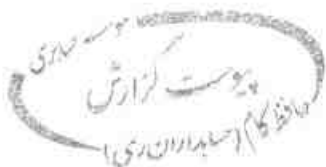 موسسه حسابرسی
پیوست گزارش
حافظ گام (حسابداران رسمی)